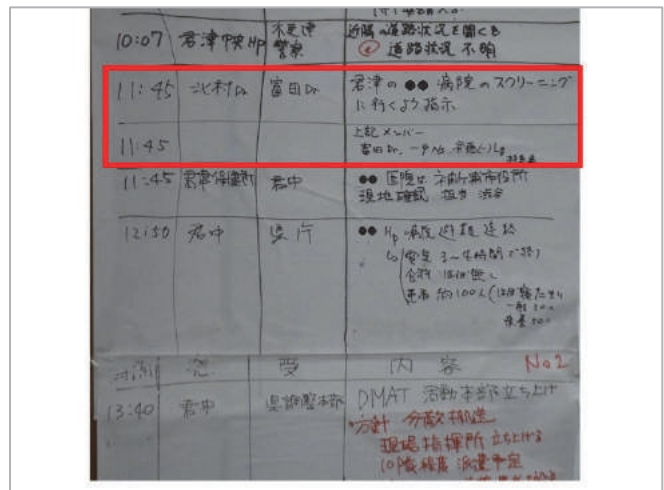 10:07 君津中央Hp 木更津警察 近隣の道路状況を聞くも
道路状況 不明
11:45 北村Dr 富田Dr 君津の ●● 病院のスクリーニング
に行くよう指示
11:45 上記メンバー
富田Dr.
11:45 君津保健所 君中 ●● 医院は 市役所
現地確認 担当
12:50 君中 県庁 ●● Hp 病院避難連絡
電気 3～4時間で終り
食料 ほぼ無し
患者 約100人(ほぼ寝たきり
時間 発 受 内容 No2
13:40 君中 県調整本部 DMAT 活動本部立ち上げ
方針 分散搬送
現場指揮所 立ち上げる
10隊程度 派遣予定